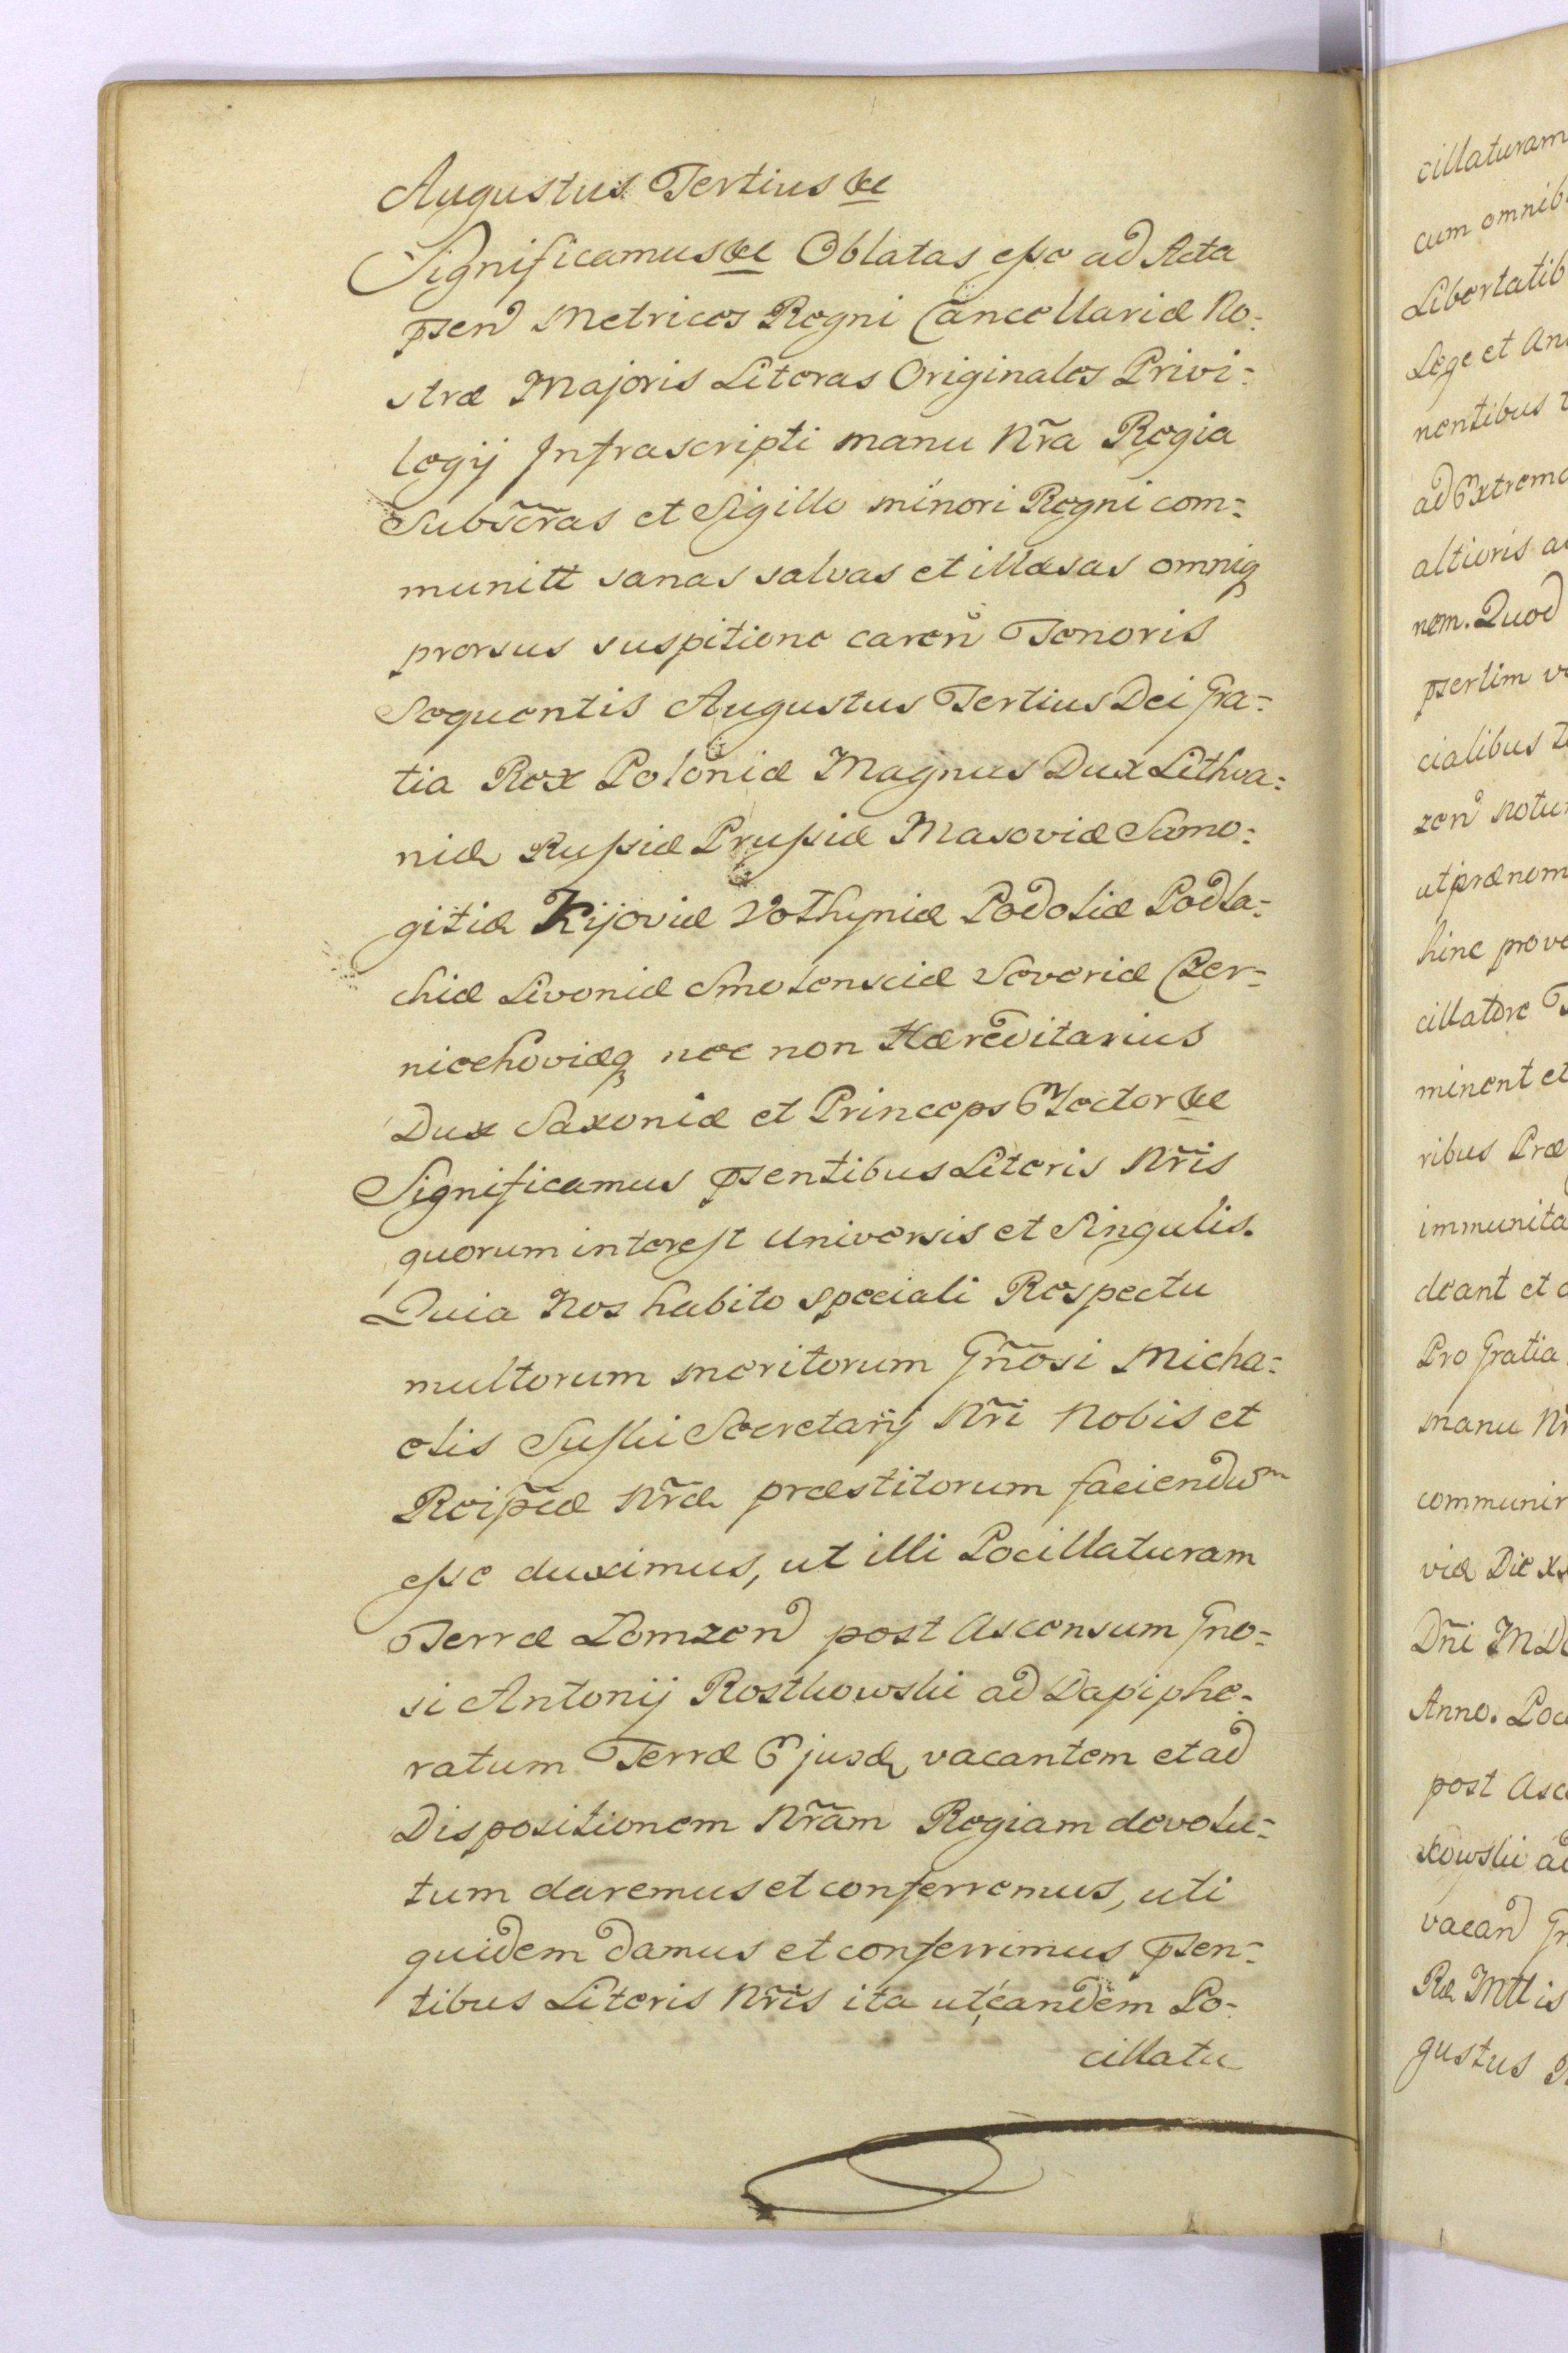 Augustus Tertius &c
Significamus &c Oblatas esse ad Acta
pṡen̄ Metrices Regni Cancellariæ No:
stræ Majoris Literas Originales Privi:
legij Infrascripti manu Nr̃a Regia
Subscr̃as et Sigillo minori Regni com:
munitt sanas salvas et illæsas omniq
prorsus suspitione caren̄ Tenoris
Sequentis Augustus Tertius Dei Gra:
tia Rex Poloniæ Magnus Dux Lithva:
niæ Russiæ Prussiæ Masoviæ Samo:
gitiæ Kijoviæ Volhyniæ Podoliæ Podla:
chiæ Livoniæ Smolensciæ Severiæ Czer:
niechoviæq nec non Hæreditarius
Dux Saxoniæ et Princeps Elector &c
Significamus pṡentibus Literis Nr̃is
quorum interest Universis et Singulis.
Quia Nos habito speciali Respectu
multorum meritorum Gñosi Micha:
elis Suski Secretarij Nr̃i Nobis et
Reip̃cæ Nr̃æ præstitorum faciendum
esse duximus, ut illi Pocillaturam
Terræ Lomzen̄ post Ascensum Gno:
si Antonij Rostkowski ad Dapiphe:
ratum Terræ Ejusd vacantem et ad
Dispositionem Nr̃am Regiam devolu:
tum daremus et conferremus, uti
quidem damus et conferrimus pṡen:
tibus Literis Nr̃is ita ut eandem Po:
cillatu
cillaturam
cum omnib
Libertatib
Lege et An
nentibus
ad Extrema
altioris a
nem. Quod
pṡertim v
cialibus
zen̄ Notu
ut præ nom
hinc prove
cillatore
minent et
ribus Præ
immunita
deant et
Pro Gratia
manu Nr
communir
viæ Die
Dñi MD
Anno. Poc
post Asc
kowski ad
vacan̄ Gr
Ræ Mttis
gustus